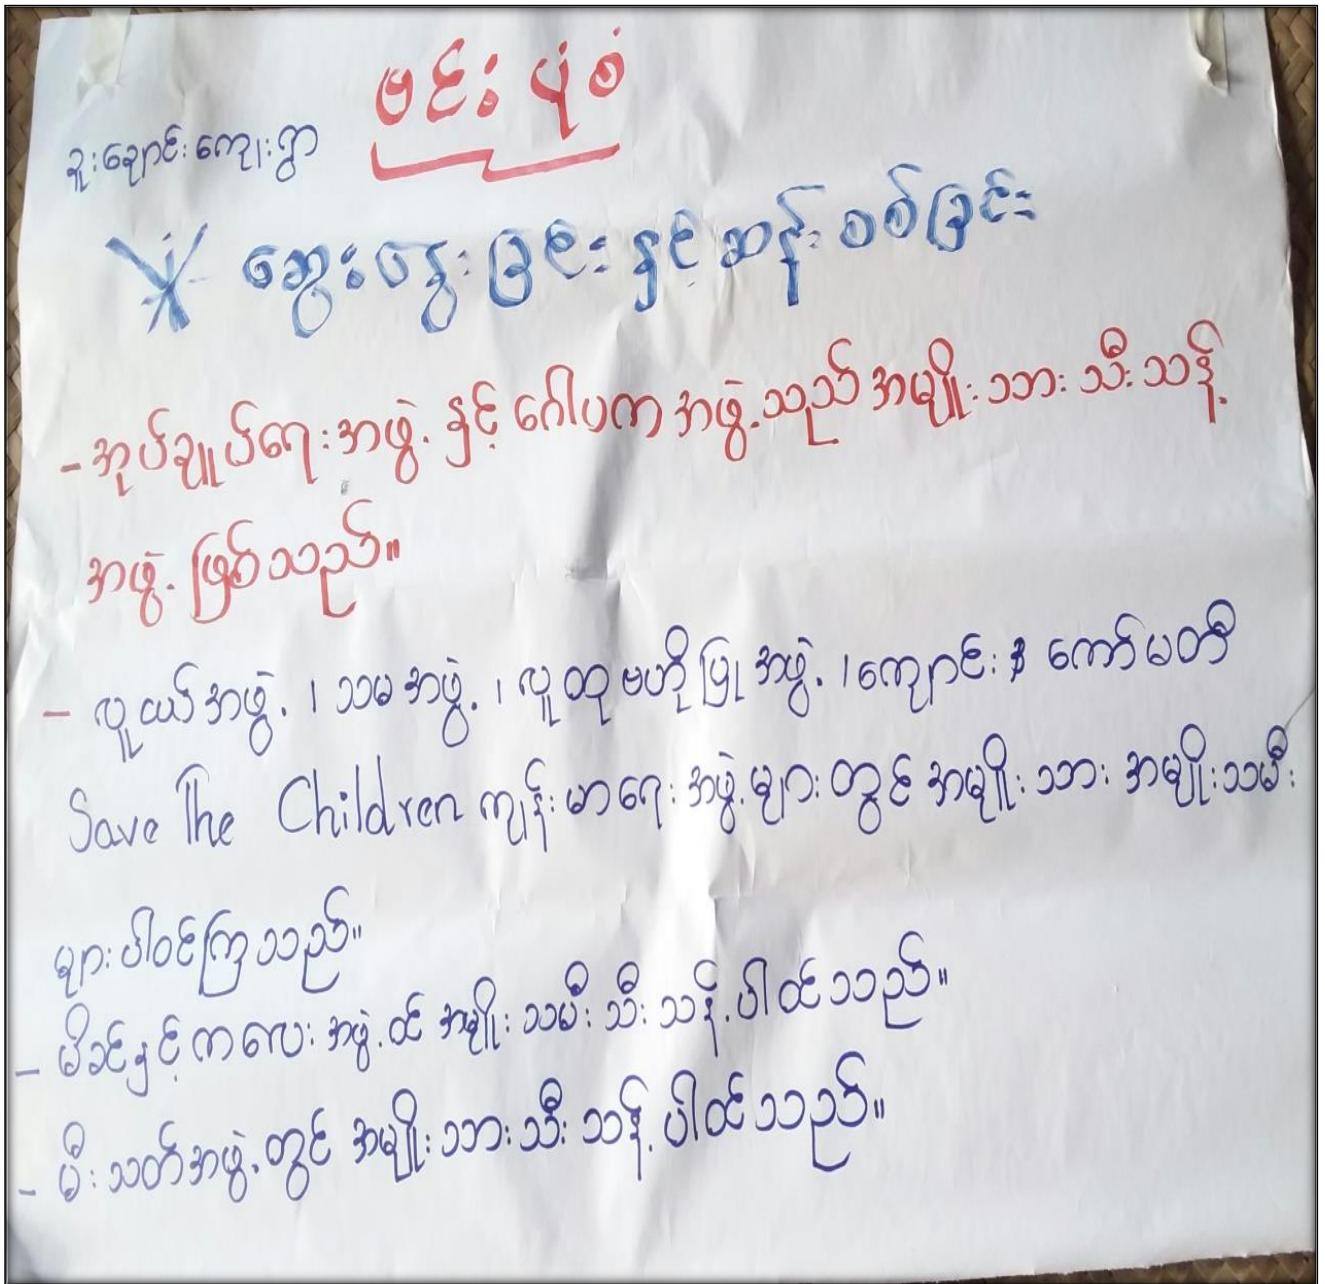 ဗင်းပုံစံ
ခူးချောင်းကျေးရွာ
ဆွေးနွေးခြင်းနှင့်ဆန်းစစ်ခြင်း
- အုပ်ချုပ်ရေးအဖွဲ့ နှင့် ဂေါပကအဖွဲ့သည် အမျိုးသားသီးသန့်
အဖွဲ့ ဖြစ်သည်။
- လူငယ်အဖွဲ့၊ သမအဖွဲ့၊ လူထုဗဟိုပြုအဖွဲ့၊ ကျောင်း ကော်မတီ
Save The Children ကျန်းမာရေးအဖွဲ့များတွင် အမျိုးသား အမျိုးသမီး
များပါဝင်ကြသည်။
- မိခင်နှင့်ကလေးအဖွဲ့ဝင် အမျိုးသမီးသီးသန့်ပါဝင်သည်။
- မီးသတ်အဖွဲ့တွင် အမျိုးသားသီးသန့်ပါဝင်သည်။